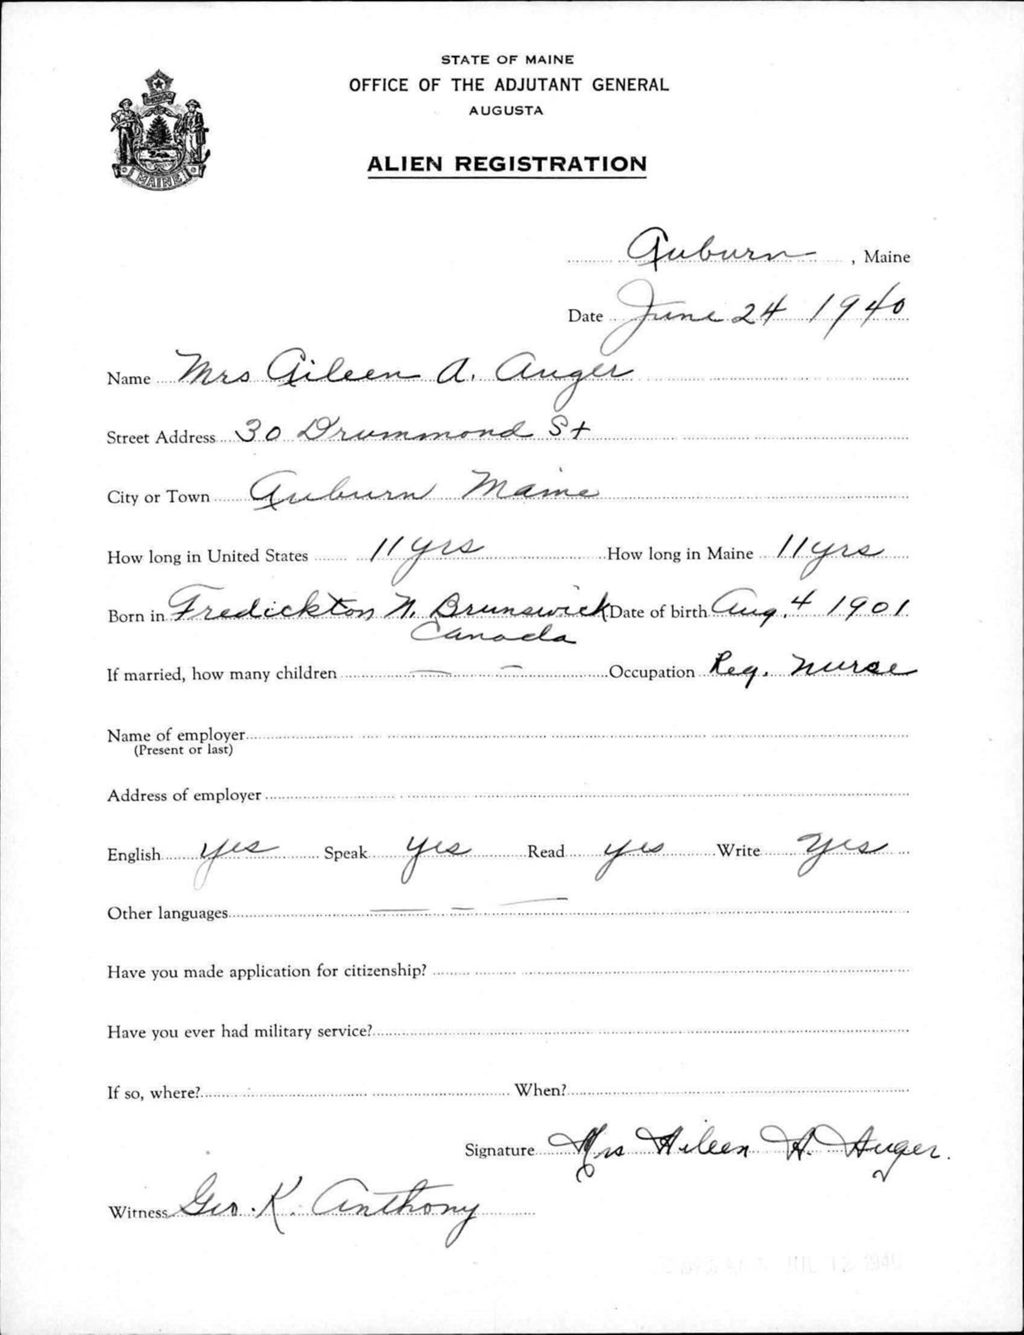 STATE OF MAINE
OFFICE OF THE ADJUTANT GENERAL
AUGUSTA
ALIEN REGISTRATION
MAINE
Auburn, Maine
Date June 24 1940
Name Mrs Aileen A. Auger
Street Address 30 Drummond St
City or Town Auburn Maine
How long in United States 11 yrs How long in Maine 11 yrs
Born in Fredickton N. Brunswick Date of birth Aug. 4 1901
Canada
If married, how many children — — Occupation Reg. Nurse
Name of employer
(Present or last)
Address of employer
English yes Speak yes Read yes Write yes
Other languages — — —
Have you made application for citizenship?
Have you ever had military service?
If so, where? When?
Signature Mrs Aileen A. Auger.
Witness Geo. K. Anthony